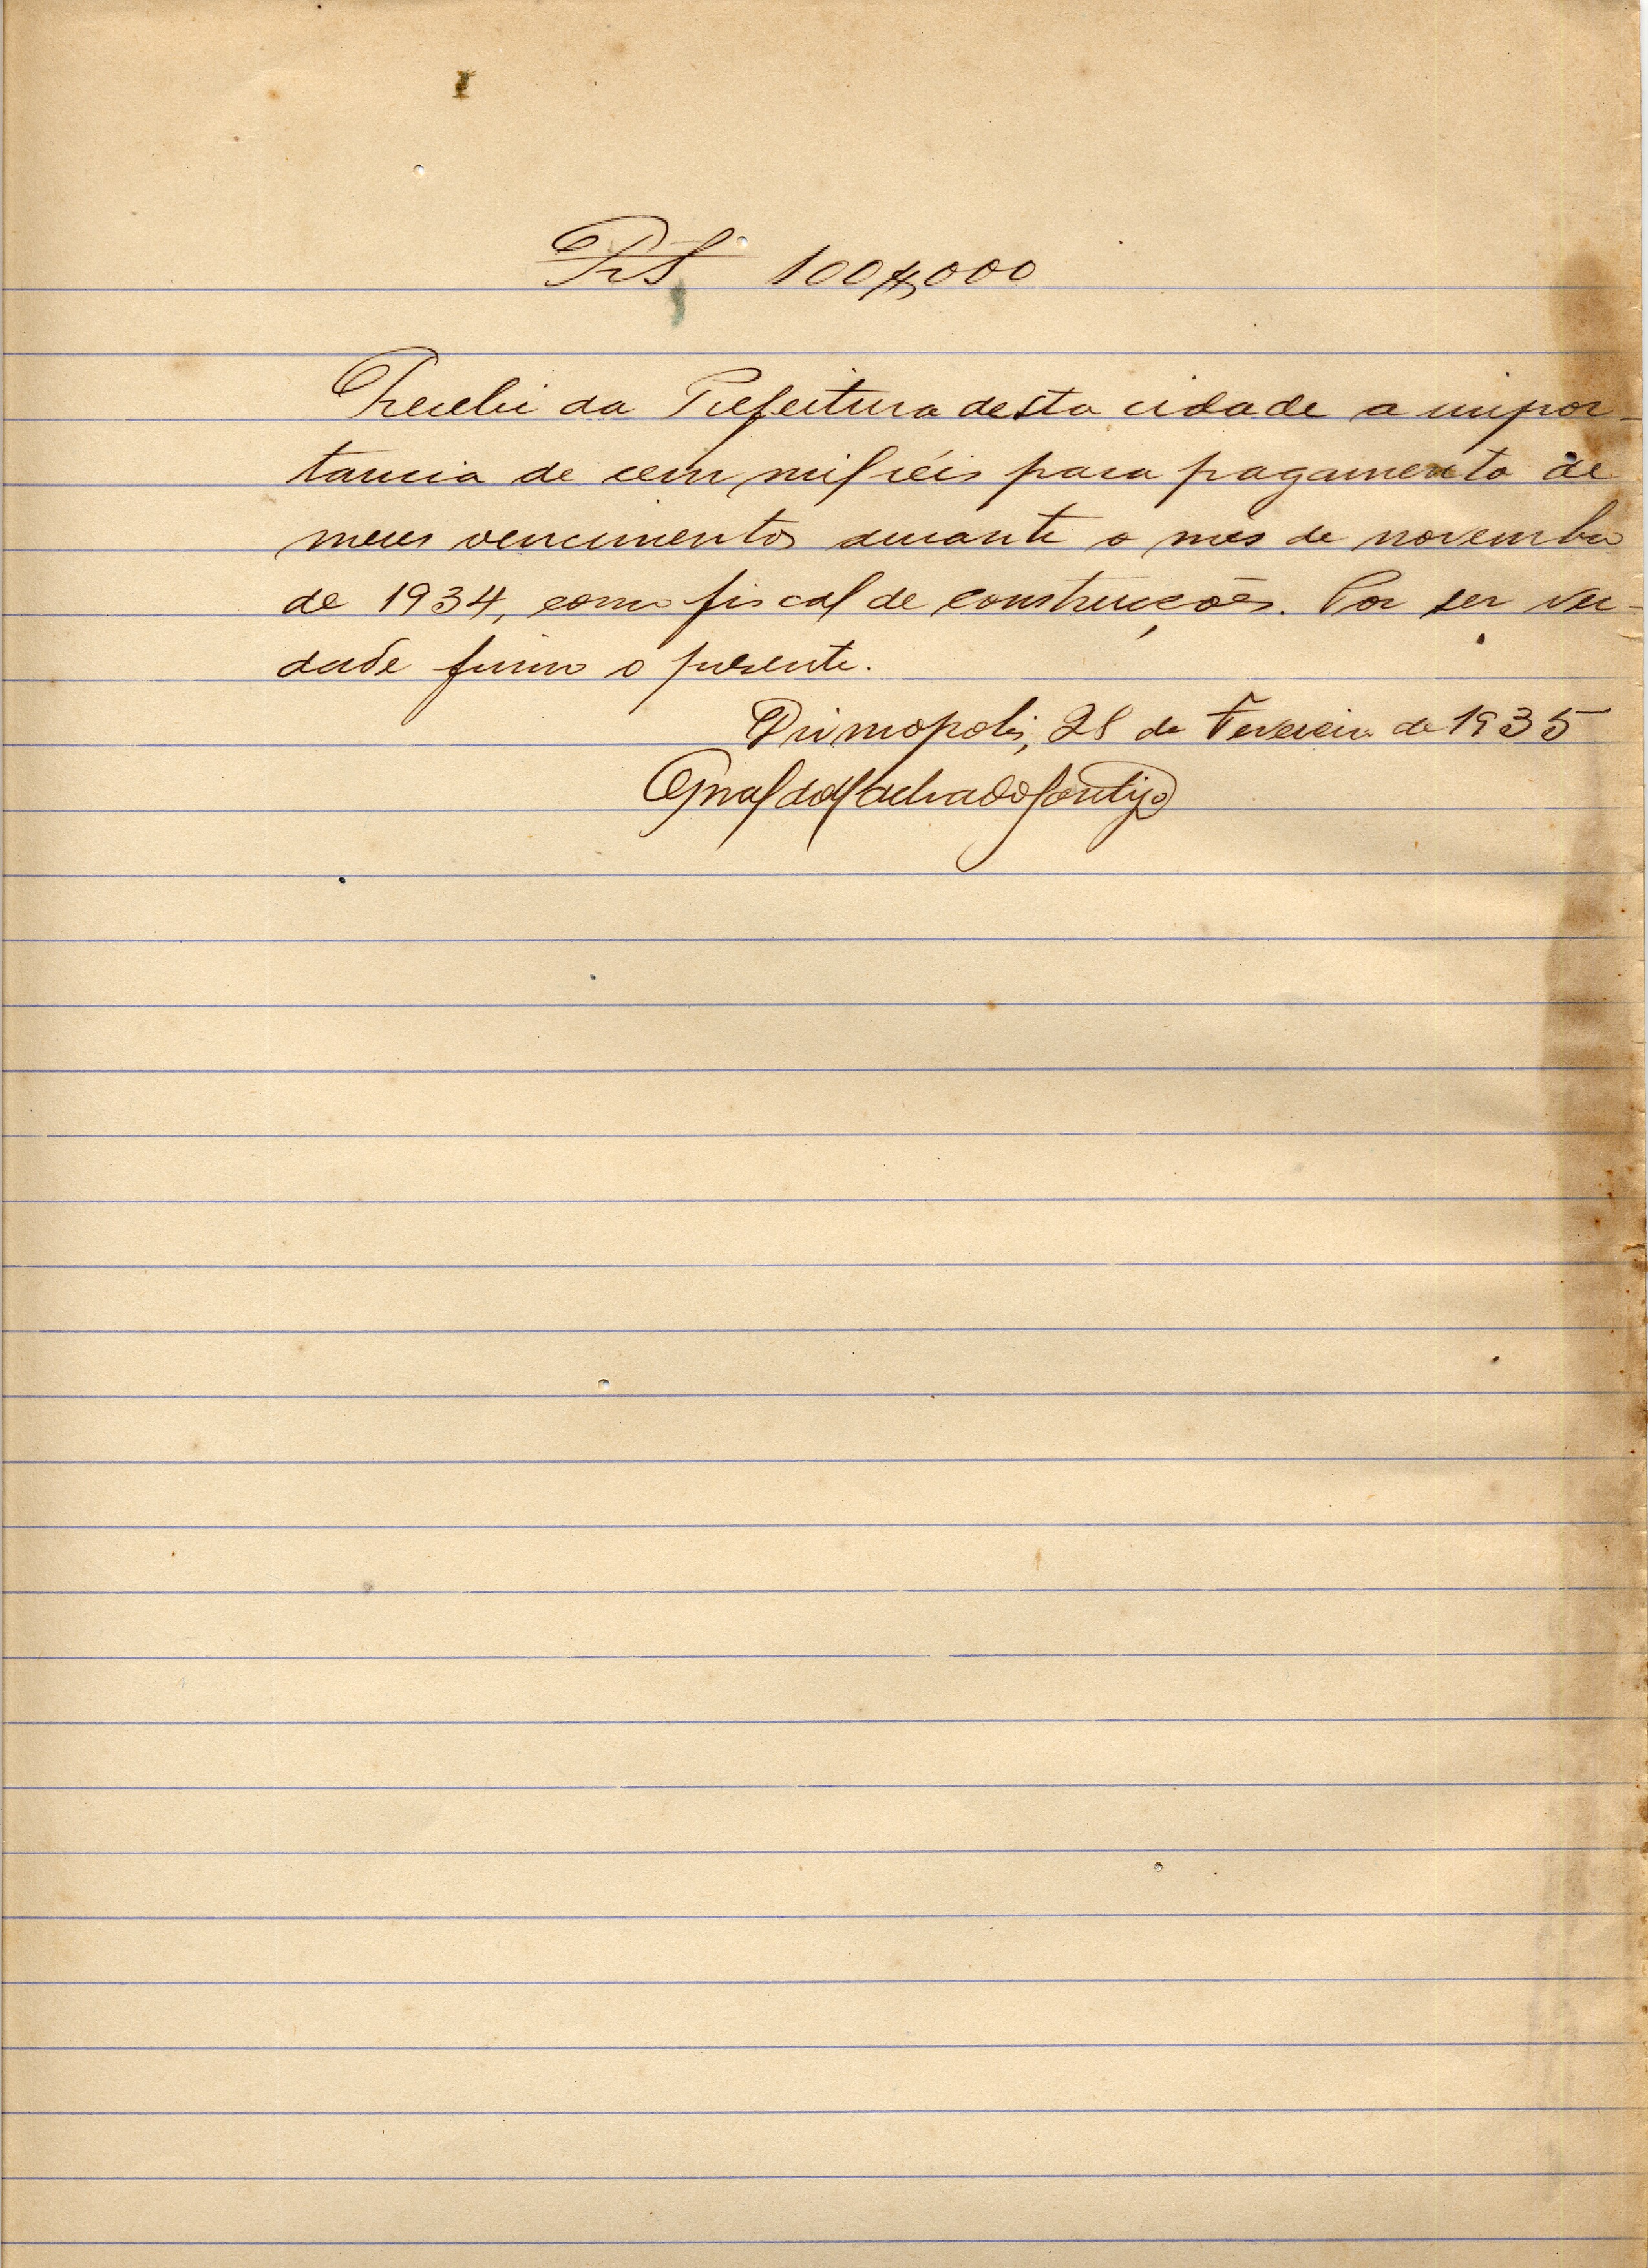 RS 100$000
Recebi da Prefeitura desta cidade a impor-
tancia de cem mil réis para pagamento de
meus vencimentos durante o mês de novembro
de 1934, como fiscal de construções. Por ser ver-
dade firmo o presente.
Divinopolis, 28 de Fevereiro de 1935
Machado Gontijo